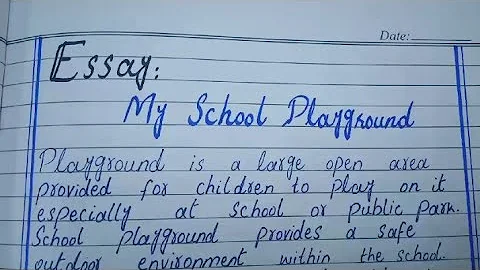 Date:
Essay:
My School Playground
Playground is a large open area
provided for children to play on it
especially at school or public park.
School playground provides a safe
outdoor environment within the school.